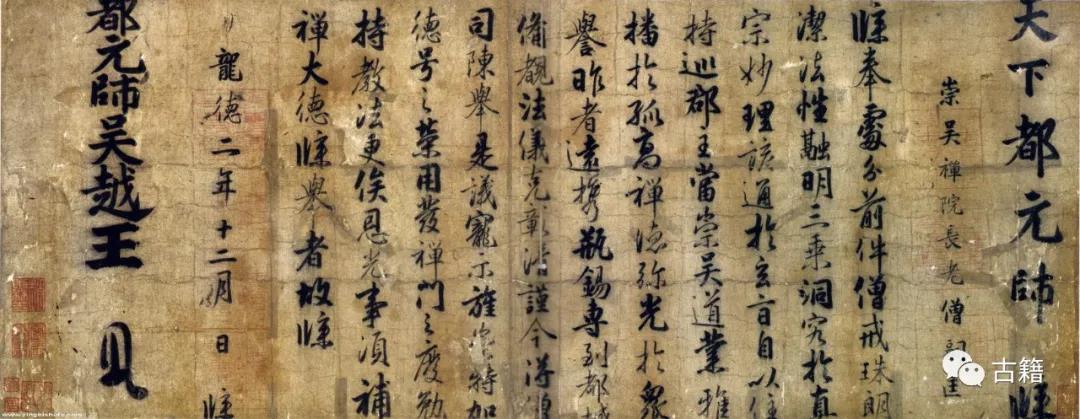 天下都元帥 牒
崇吳禪院長老僧嗣匡
牒奉處分前件僧戒珠朗
潔法性融明三乘洞究於真
宗妙理該通於玄旨自以住
持巡郡主當崇吳道業雅
播於孤高禪德弥光於眾
譽昨者遠携瓶錫專到都城
備覩法儀克彰謹今得
司陳舉是議寵示旌崇特加
德号之榮用發禪門之慶勉
持教法更俟恩光事須補
禪大德牒舉者故牒
龍德二年十二月 日 牒
都元帥吳越王
古籍
www.yingbishufa.com